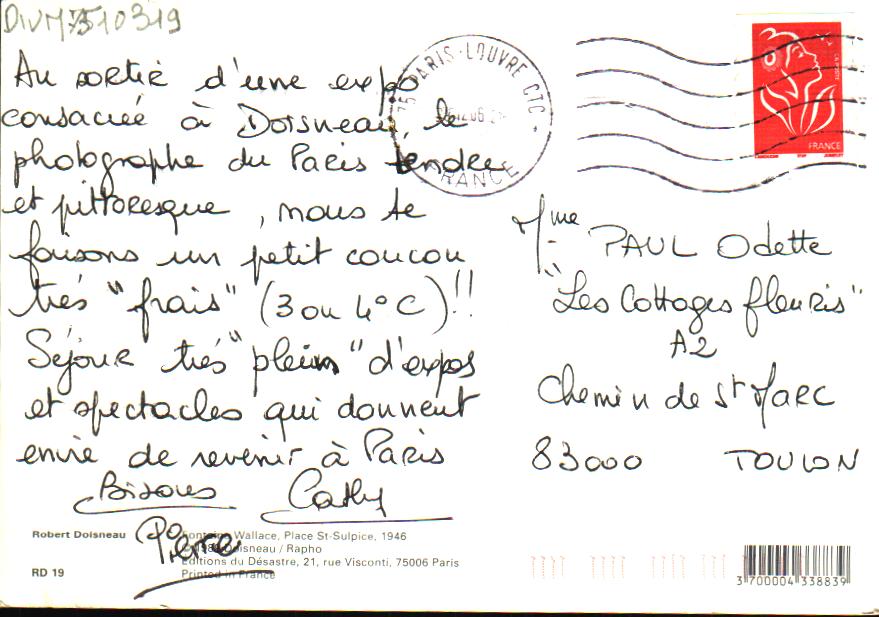 DIVM7510319
Au sortir d'une expo
consacrée à Doisneau, le
photographe du Paris tendre
et pittoresque, nous te
faisons un petit coucou
très "frais" (3 ou 4° C)!!
Séjour très "plein" d'expos
et spectacles qui donnent
envie de revenir à Paris
Bisous Cathy
Pierre
75 PARIS-LOUVRE CTC
FRANCE
FRANCE
Mme PAUL Odette
"Les Cottages fleuris"
A2
Chemin de St Marc
83000 TOULON
Robert Doisneau
RD 19
Fontaine Wallace, Place St-Sulpice, 1946
Doisneau / Rapho
Editions du Désastre, 21, rue Visconti, 75006 Paris
Printed in France
3 700004 338839